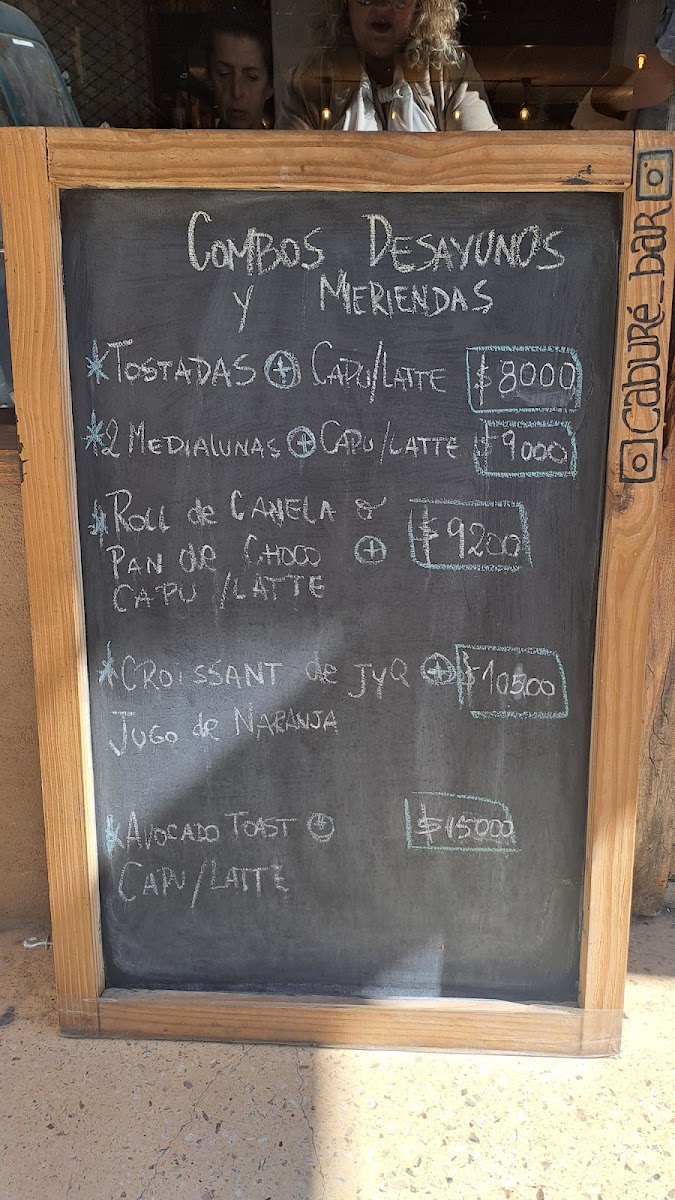 COMBOS DESAYUNOS
Y MERIENDAS
* TOSTADAS + CAPU/LATTE $8000
* 2 MEDIALUNAS + CAPU/LATTE $9000
* ROLL de CANELA &
PAN de CHOCO + $9200
CAPU/LATTE
* CROISSANT de JYQ + $10500
JUGO de NARANJA
* AVOCADO TOAST + $15000
CAPU/LATTE
caburé_bar